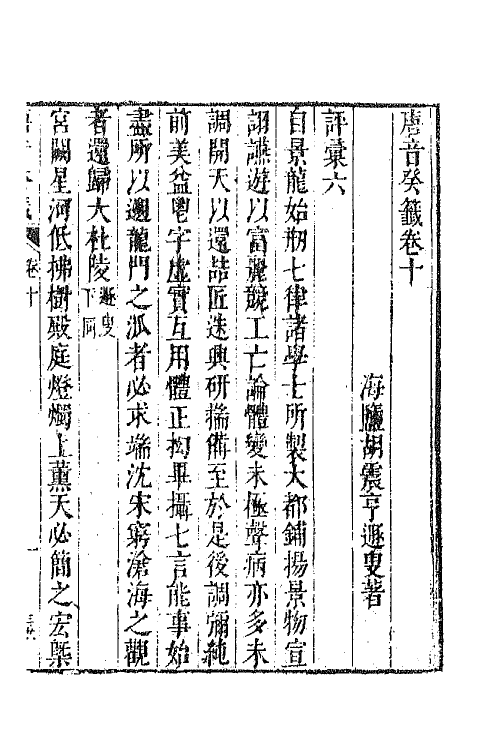 唐音癸籤卷十
海鹽胡震亨遯叟著
評彙六
自景龍始剏七律諸學士所製大都鋪揚景物宣
詡讌遊以富麗競工亡論體變未極聲病亦多未
調開天以還喆匠迭興研揣備至於是後調彌純
前美益鬯字虛實互用體正拗畢攝七言能事始
盡所以遡龍門之派者必求端沈宋窮滄海之觀
者還歸大杜陵遯叟下同
宮闕星河低拂樹殿庭燈燭上薰天必簡之宏槩
卷十 一